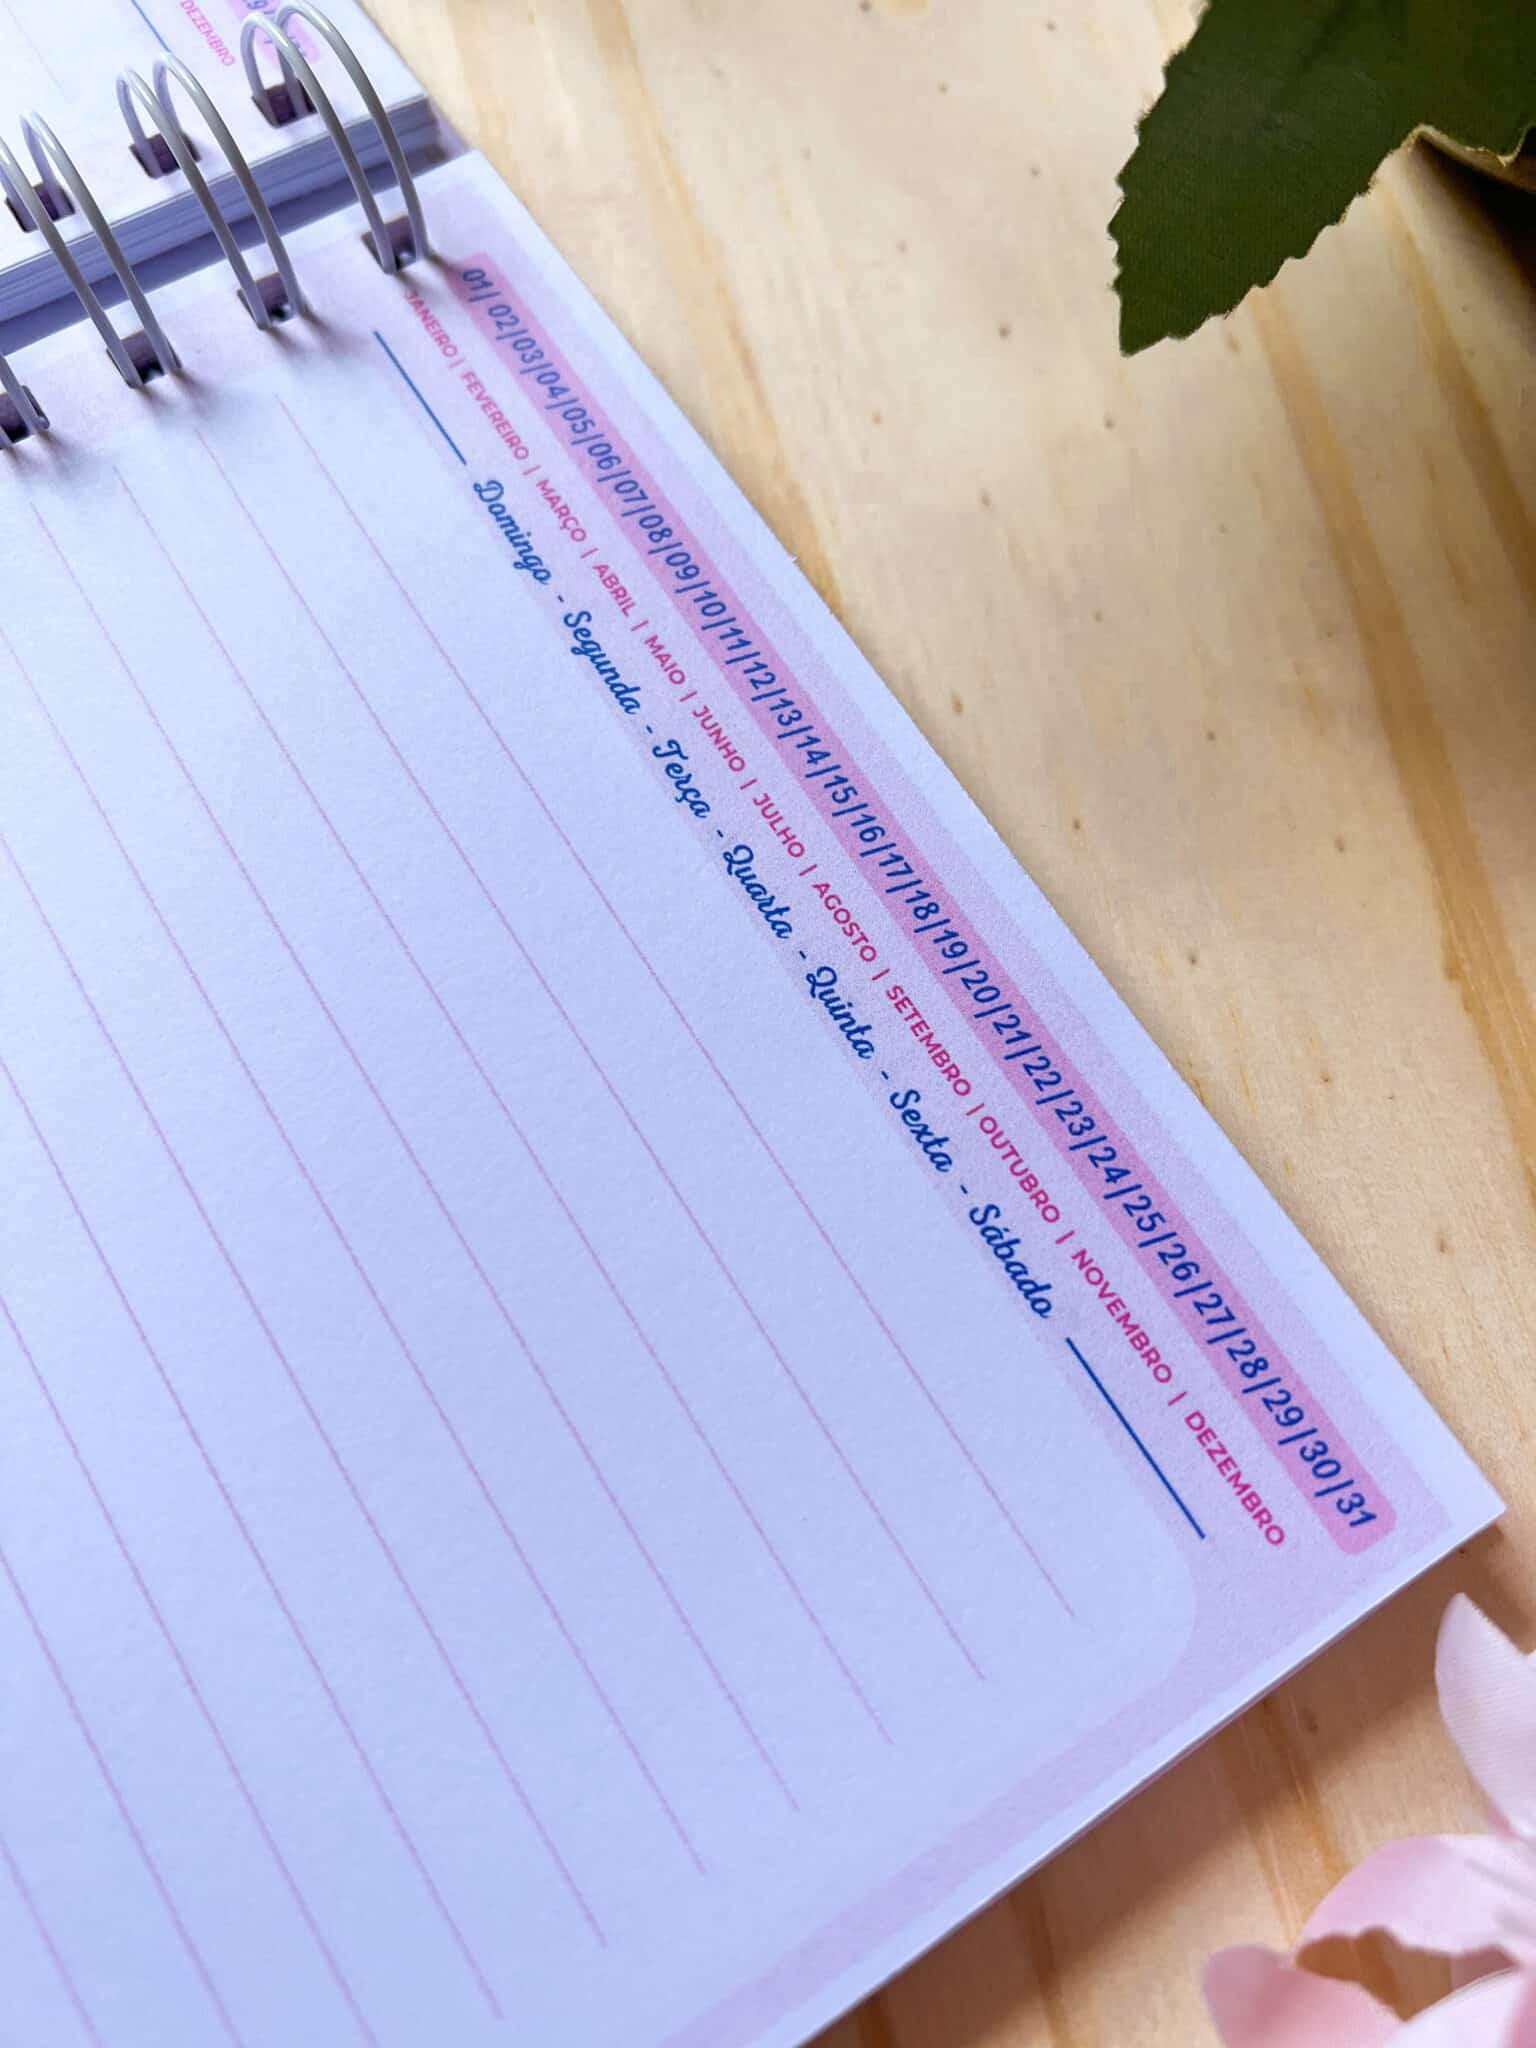 DEZEMBRO
01|02|03|04|05|06|07|08|09|10|11|12|13|14|15|16|17|18|19|20|21|22|23|24|25|26|27|28|29|30|31
JANEIRO | FEVEREIRO | MARÇO | ABRIL | MAIO | JUNHO | JULHO | AGOSTO | SETEMBRO | OUTUBRO | NOVEMBRO | DEZEMBRO
Domingo - Segunda - Terça - Quarta - Quinta - Sexta - Sábado